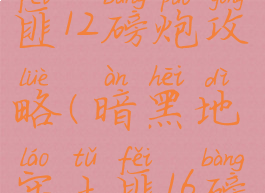 fěi bàng pào gōng
匪12磅炮攻
lüè àn hēi dì
略(暗黑地
láo tǔ fěi bàng
牢土匪16磅